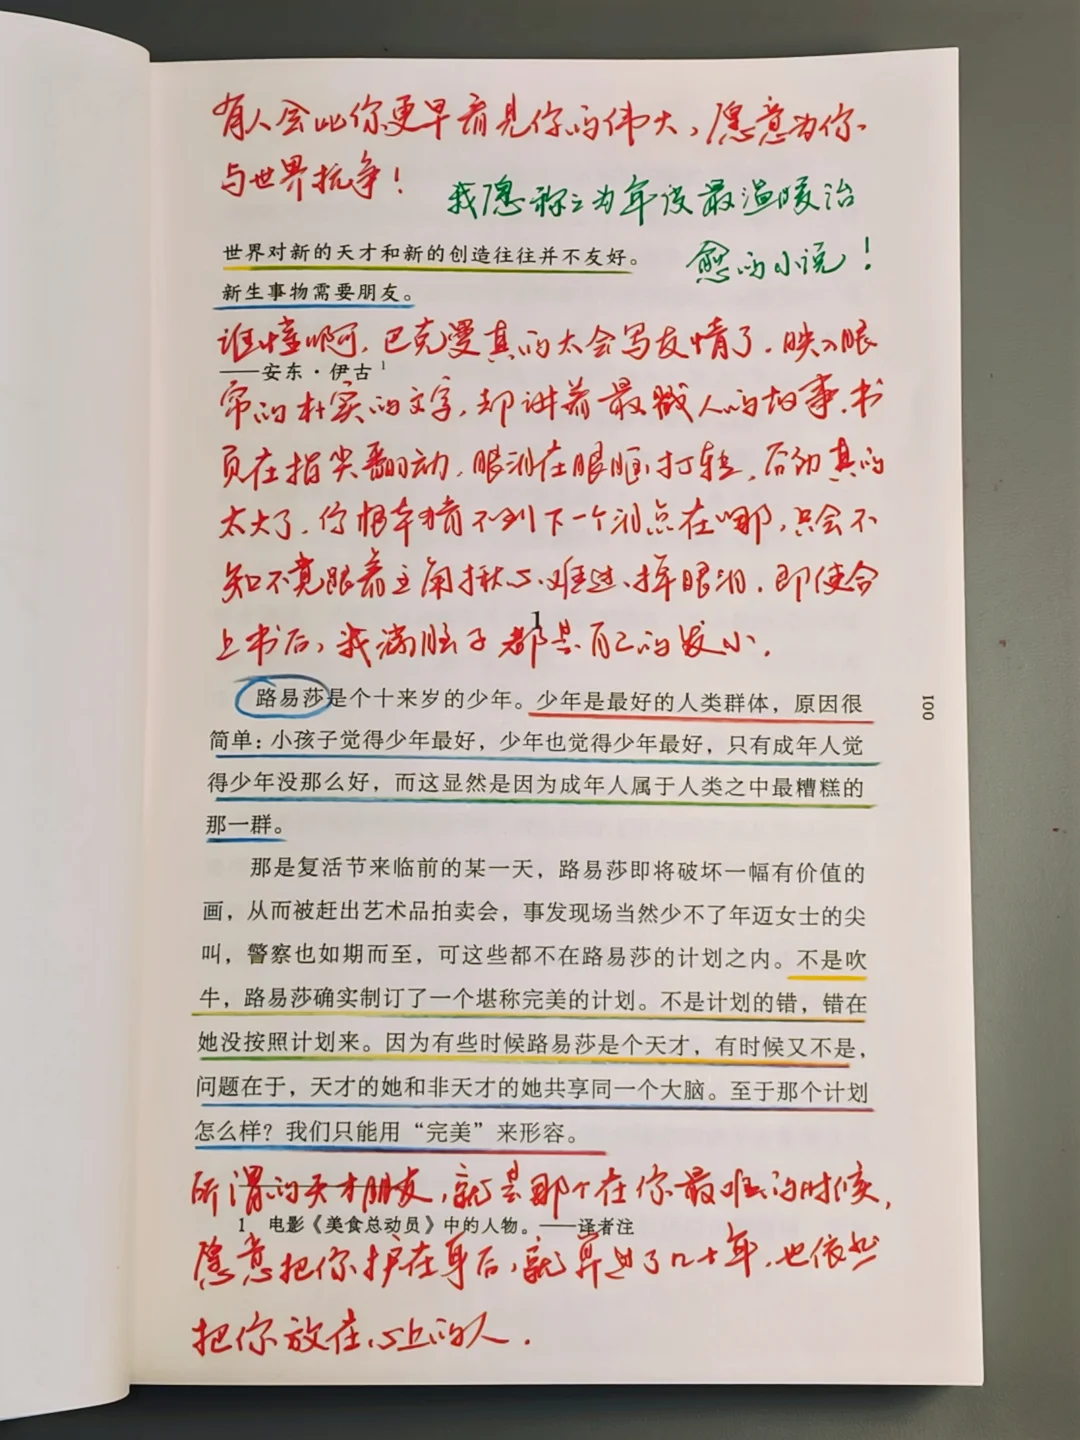 有人会比你更早看见你的伟大，愿意为你
与世界抗争！
我愿称之为年度最温暖治
愈的小说！
世界对新的天才和新的创造往往并不友好。
新生事物需要朋友。
谁懂啊，巴克曼真的太会写友情了，映入眼
——安东·伊古1
帘的朴实的文字，却讲着最戳人的故事，书
页在指尖翻动，眼泪在眼眶打转，后劲真的
太大了，你根本猜不到下一个泪点在哪，只会不
知不觉跟着主角揪心、难过、掉眼泪，即使合
1
上书后，我满脑子都是自己的发小。
路易莎是个十来岁的少年。少年是最好的人类群体，原因很
简单：小孩子觉得少年最好，少年也觉得少年最好，只有成年人觉
得少年没那么好，而这显然是因为成年人属于人类之中最糟糕的
那一群。
001
那是复活节来临前的某一天，路易莎即将破坏一幅有价值的
画，从而被赶出艺术品拍卖会，事发现场当然少不了年迈女士的尖
叫，警察也如期而至，可这些都不在路易莎的计划之内。不是吹
牛，路易莎确实制订了一个堪称完美的计划。不是计划的错，错在
她没按照计划来。因为有些时候路易莎是个天才，有时候又不是，
问题在于，天才的她和非天才的她共享同一个大脑。至于那个计划
怎么样？我们只能用“完美”来形容。
所谓的天才朋友，就是那个在你最难的时候，
1 电影《美食总动员》中的人物。——译者注
愿意把你护在身后，就算过了几十年，也依然
把你放在心上的人．